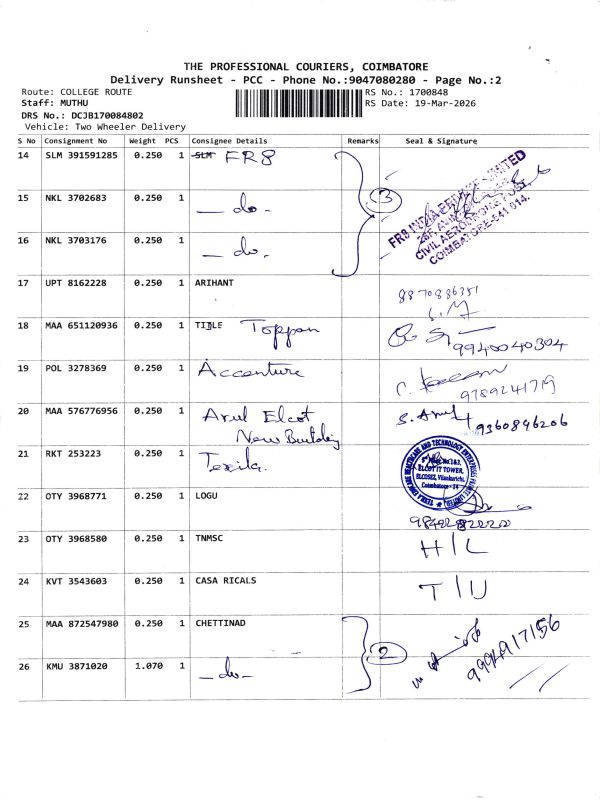 THE PROFESSIONAL COURIERS, COIMBATORE
Delivery Runsheet - PCC - Phone No.:9047080280 - Page No.:2
Route: COLLEGE ROUTE
RS No.: 1700848
Staff: MUTHU
RS Date: 19-Mar-2026
DRS No.: DCJB170084802
Vehicle: Two Wheeler Delivery
S No Consignment No Weight PCS Consignee Details Remarks Seal & Signature
14 SLM 391591285 0.250 1 SLM FR8
15 NKL 3702683 0.250 1 — do - 3
16 NKL 3703176 0.250 1 — do -
FR8 INDIA LIMITED
CIVIL AERODROME POST,
COIMBATORE-641 014.
17 UPT 8162228 0.250 1 ARIHANT 8870886351
18 MAA 651120936 0.250 1 TITLE Toppan
9940040304
19 POL 3278369 0.250 1 Accenture
9789241719
20 MAA 576776956 0.250 1 Arul Elcot S. Arul
New Building 9360896206
21 RKT 253223 0.250 1 Texila.
ELCOT IT TOWER,
ELCOSEZ, Vilankurichi,
Coimbatore - 14
22 OTY 3968771 0.250 1 LOGU
23 OTY 3968580 0.250 1 TNMSC H/L
24 KVT 3543603 0.250 1 CASA RICALS T/U
25 MAA 872547980 0.250 1 CHETTINAD 2
9994917156
26 KMU 3871020 1.070 1 — do -